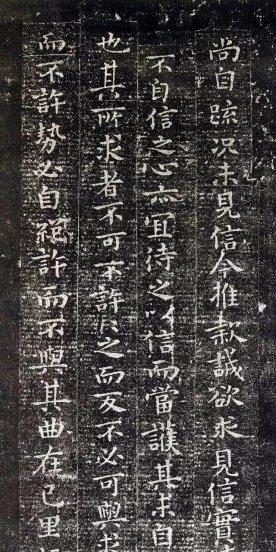 尚自疏况未見信今推款誠欲求見信實
不自信之心亦宜待之以信而當護其未自
也其所求者不可不許〻之而反不必可與求
而不許勢必自絕許而不與其曲在己里